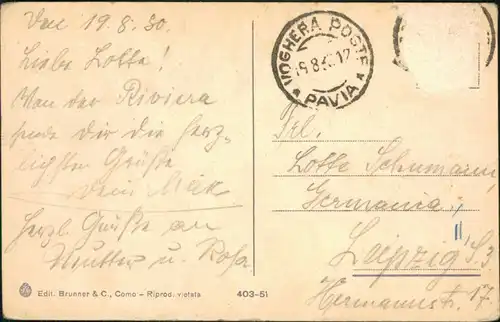 den 19.8.30.
Liebe Lotte!
Von der Riviera
sende Dir die herz-
lichsten Grüße
Dein Max
Herzl. Grüße an
Mutter u. Rosa
VOGHERA POSTE
19.8.30.17
* PAVIA *
Frl.
Lotte Schumann
Germania
Leipzig S.3
Hermannstr. 17.
Edit. Brunner & C., Como - Riprod. vietata
403-51